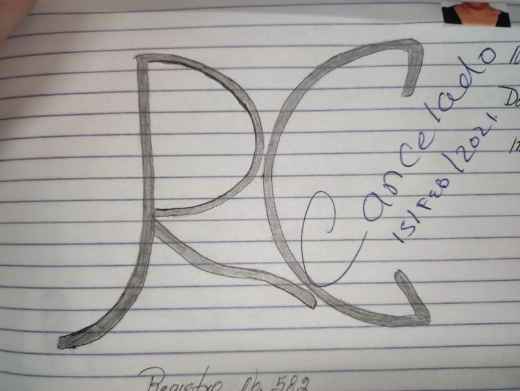 RC
Cancelado
15/FEB/2021
Registro Nº 582